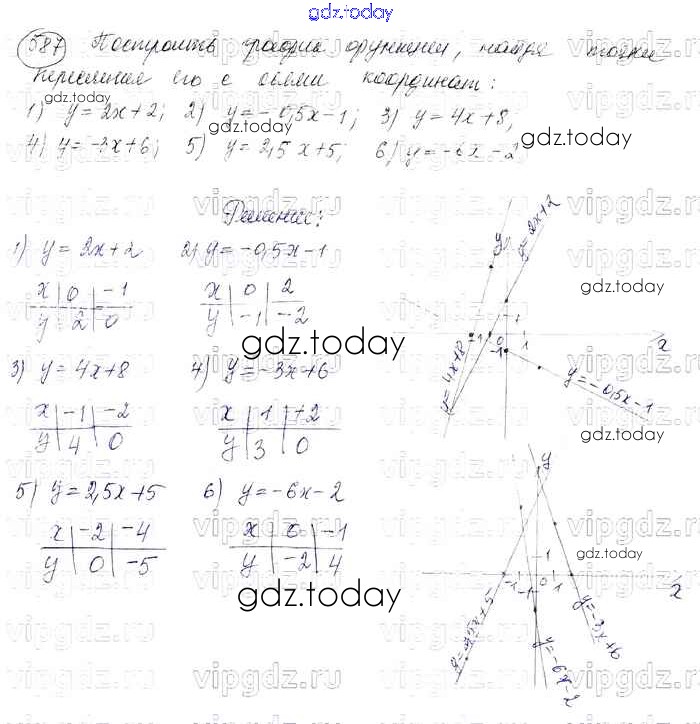 gdz.today
587 Построить график функции, найдя точки
пересечения его с осями координат:
gdz.today
1) y = 2x+2; 2) y = -0,5x-1; 3) y = 4x+8;
4) y = -3x+6; 5) y = 2,5x+5; 6) y = -6x-2
gdz.today
Решение:
1) y = 2x+2 2) y = -0,5x-1
x 0 -1
y 2 0
x 0 2
y -1 -2
gdz.today
3) y = 4x+8 4) y = -3x+6
x -1 -2
y 4 0
x 1 +2
y 3 0
5) y = 2,5x+5 6) y = -6x-2
x -2 -4
y 0 -5
x 0 -1
y -2 4
gdz.today
y
y=2x+2
gdz.today
1
-1 0 1 x
-1
y=4x+8
y=-0,5x-1
gdz.today
y
gdz.today
1
-1 0 1 x
-1
y=2,5x+5
y=-3x+6
y=-6x-2
vipgdz.ru